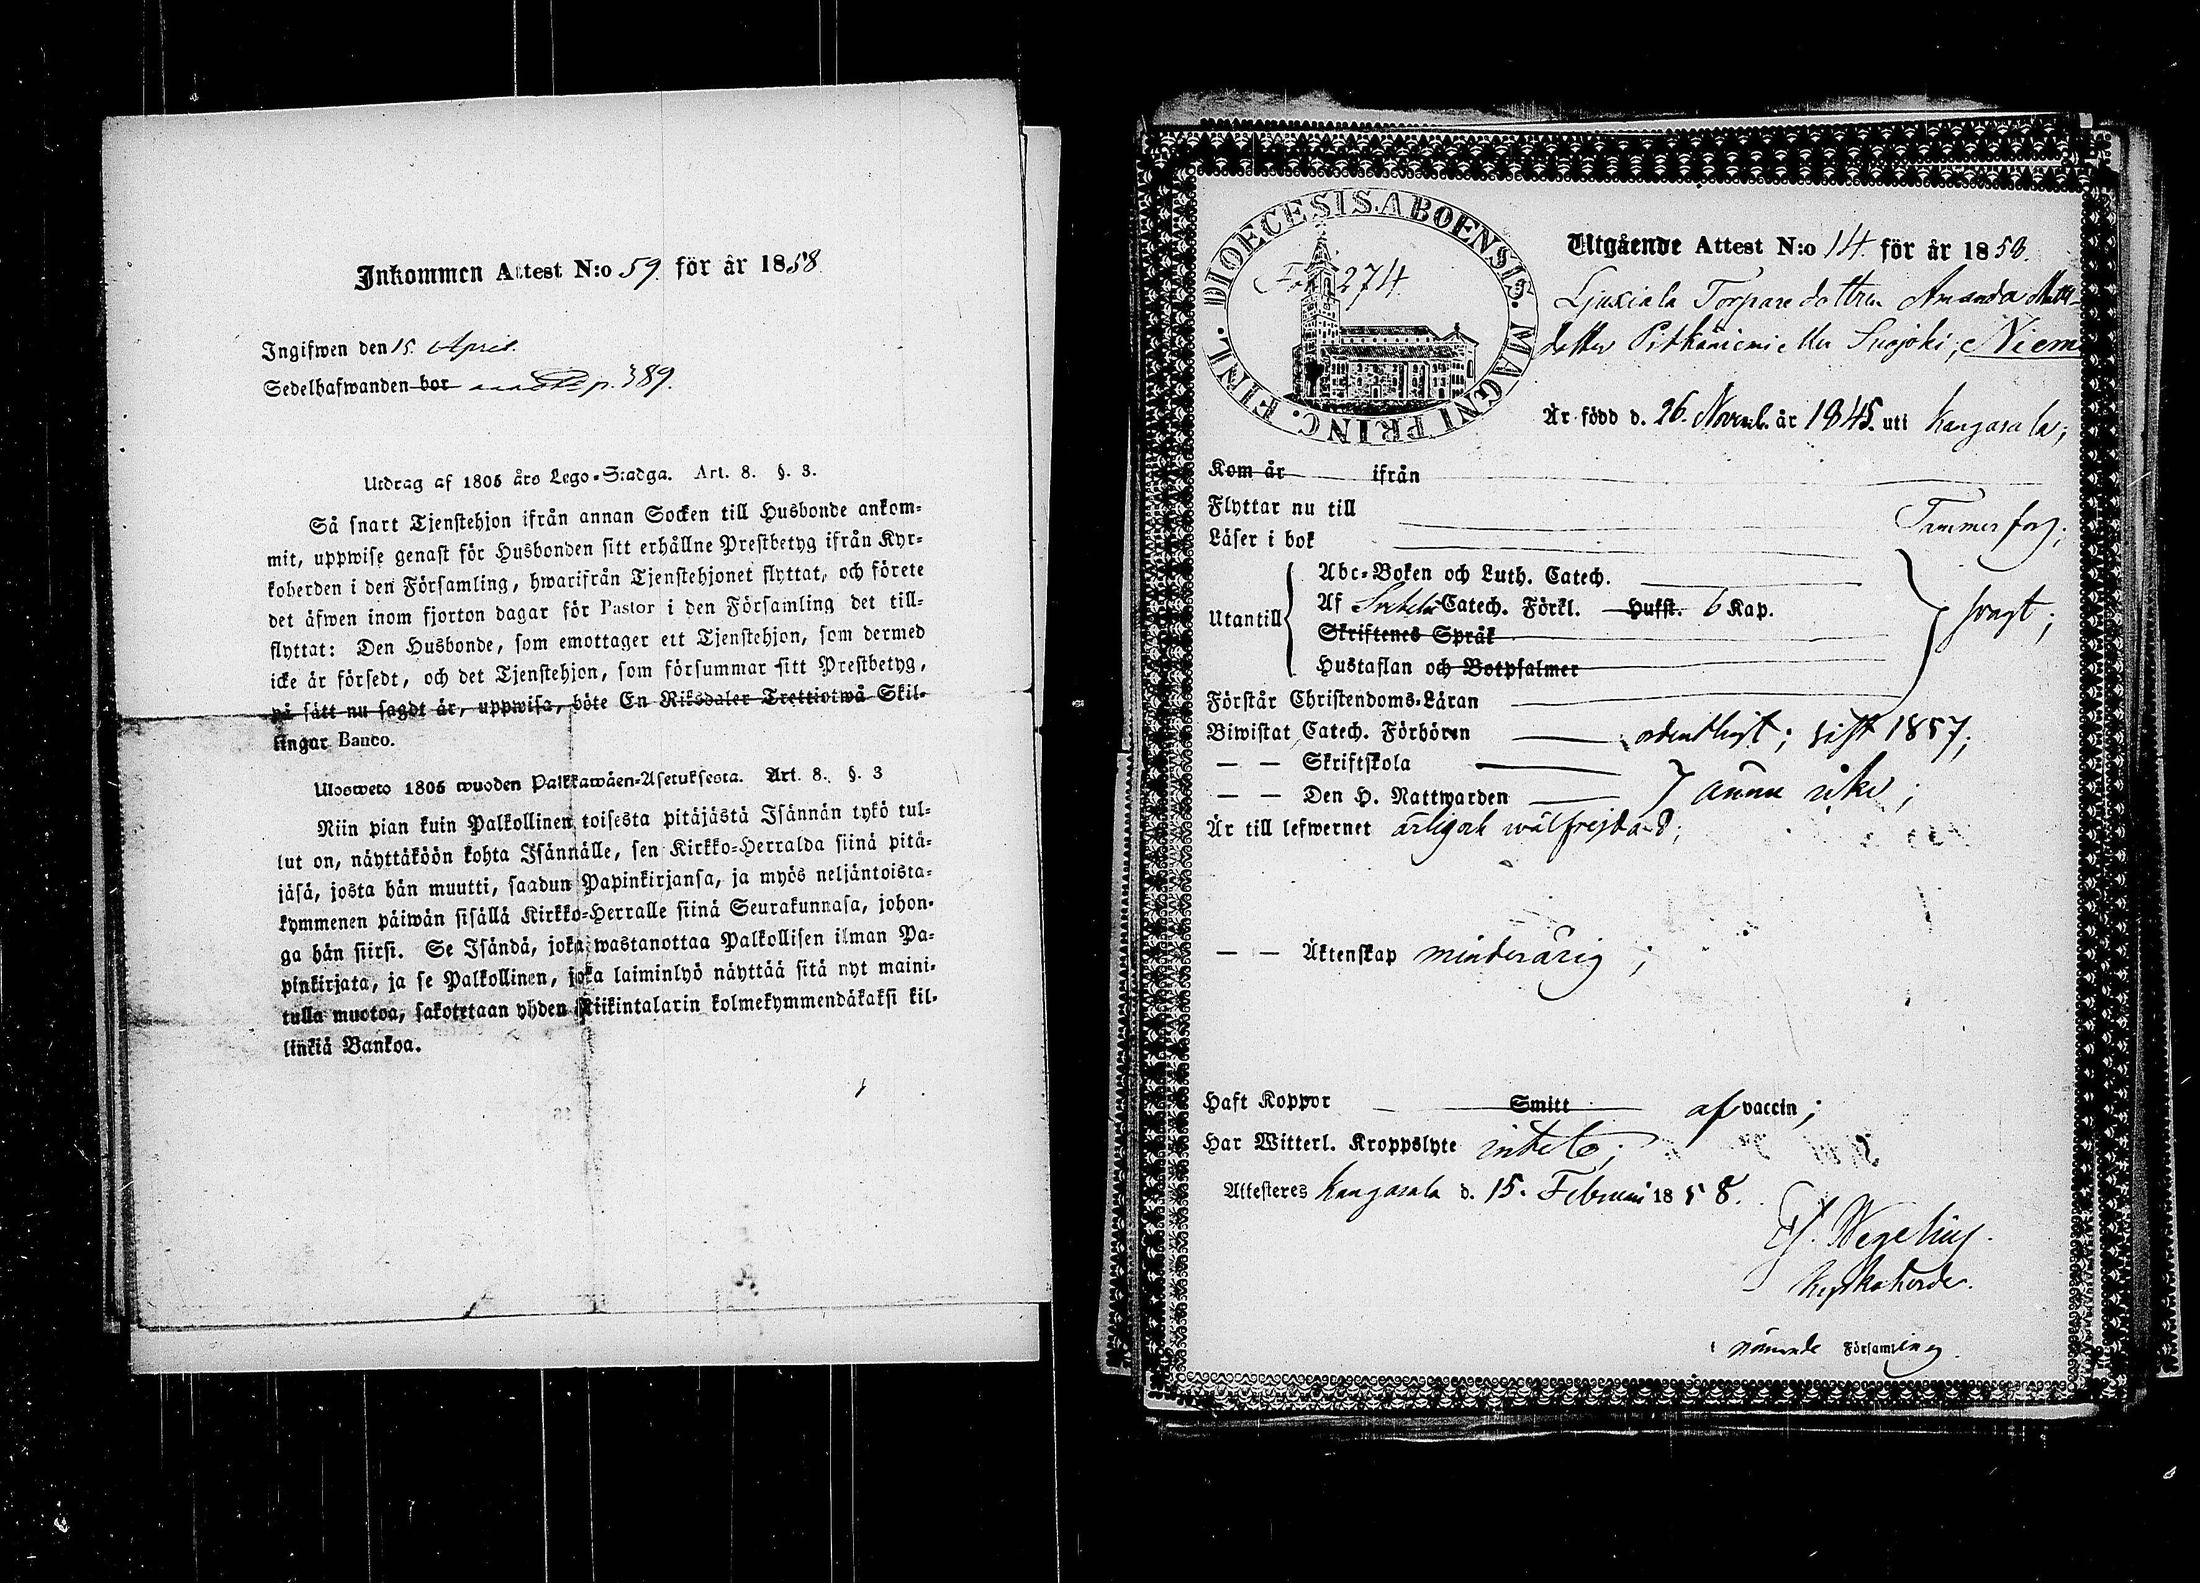 Inkommen Attest N:o 59. för år 1858
Ingifwen den 15. April.
Sedelhafwanden bor p. 389.
Utdrag af 1805 års Lego-Stadga. Art. 8. §. 3.
Så snart Tjenstehjon ifrån annan Socken till Husbonde ankom-
mit, uppwise genast för Husbonden sitt erhållne Prestbetyg ifrån Kyr-
koherden i den Församling, hwarifrån Tjenstehjonet flyttat, och förete
det äfwen inom fjorton dagar för Pastor i den Församling det till-
flyttat: Den Husbonde, som emottager ett Tjenstehjon, som dermed
icke är försedt, och det Tjenstehjon, som försummar sitt Prestbetyg,
på sätt nu sagdt är, uppwisa, böte En Riksdaler Trettiotwå Skil-
lingar Banco.
Ulosweto 1805 wuoden Palkkawäen-Asetuksesta. Art. 8. §. 3
Niin pian kuin Palkollinen toisesta pitäjästä Isännän tykö tul-
lut on, näyttäköön kohta Isännälle, sen Kirkko-Herralda siinä pitä-
jäsä, josta hän muutti, saadun Papinkirjansa, ja myös neljäntoista-
kymmenen päiwän sisällä Kirkko-Herralle siinä Seurakunnasa, johon-
ga hän siirsi. Se Isändä, joka wastanottaa Palkollisen ilman Pa-
pinkirjata, ja se Palkollinen, joka laiminlyö näyttää sitä nyt maini-
tulla muotoa, sakotetaan yhden Riikintalarin kolmekymmendäkaksi kil-
linkiä Bankoa.
DIOECESIS. ABOENSIS. MAGNI PRINC. FINL.
Fol. 274.
Utgående Attest N:o 14. för år 1858.
Ljuxiala Torparedottren Amanda Matts-
dotter Pitkäniemi eller Suojoki, Niem
Är född d. 26. Novemb. år 1845. uti Kangasala;
Kom år ifrån
Flyttar nu till Tammerfors;
Läser i bok
Utantill
Abc-Boken och Luth. Catech.
Af Catech. Förkl. Hufst. 6 Kap.
Skriftenes Språk
Hustaflan och Botpsalmer
svagt;
Förstår Christendoms-Läran
Biwistat Catech. Förhören ordentligt; sist 1857;
— — Skriftskola
— — Den H. Nattwarden ännu icke;
Är till lefwernet ärlig och wälfrejdad;
— — Äktenskap minderårig;
Haft Koppor Smitt af vaccin;
Har Witterl. Kroppslyte intet;
Attesteres Kangasala d. 15. Februari 1858.
Wegelius.
Kyrkoherde.
i nämnde Församling.